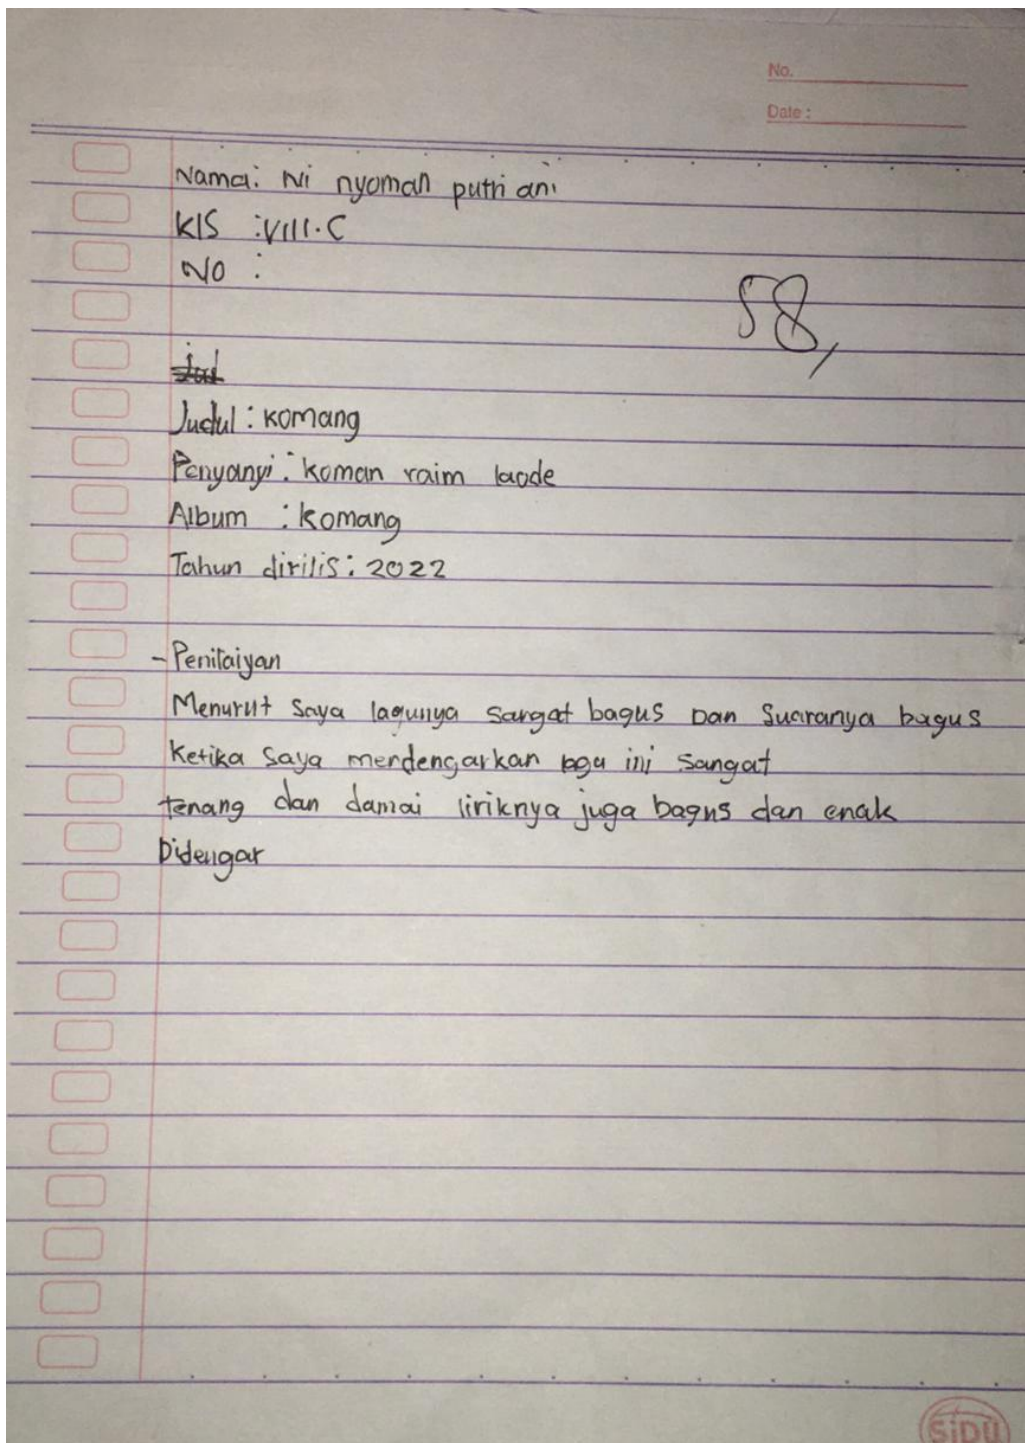 No.
Date :
Nama: Ni nyoman putri ani
Kls : VIII.C
No :
58,
Jud
Judul : komang
Penyanyi : koman raim laode
Album : komang
Tahun dirilis : 2022
- Penilaiyan
Menurut saya lagunya sangat bagus Dan Suaranya bagus
Ketika saya merdengarkan laga ini sangat
tenang dan damai liriknya juga bagus dan enak
Didengar
SiDU